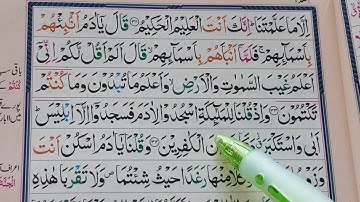 اِلَّا مَا عَلَّمْتَنَا ؕ اِنَّكَ اَنْتَ الْعَلِيْمُ الْحَكِيْمُ ﴿۳۲﴾ قَالَ يٰۤاٰدَمُ اَنْۢبِئْهُمْ
بِاَسْمَآئِهِمْ ۚ فَلَمَّاۤ اَنْۢبَاَهُمْ بِاَسْمَآئِهِمْ ۙ قَالَ اَلَمْ اَقُلْ لَّكُمْ اِنِّيْۤ
اَعْلَمُ غَيْبَ السَّمٰوٰتِ وَالْاَرْضِ ۙ وَاَعْلَمُ مَا تُبْدُوْنَ وَمَا كُنْتُمْ
تَكْتُمُوْنَ ﴿۳۳﴾ وَاِذْ قُلْنَا لِلْمَلٰٓئِكَةِ اسْجُدُوْا لِاٰدَمَ فَسَجَدُوْۤا اِلَّاۤ اِبْلِيْسَ ؕ
اَبٰى وَاسْتَكْبَرَ الْكٰفِرِيْنَ ﴿۳۴﴾ وَقُلْنَا يٰۤاٰدَمُ اسْكُنْ اَنْتَ
مِنْهَا رَغَدًا حَيْثُ شِئْتُمَا ۪ وَلَا تَقْرَبَا هٰذِهِ